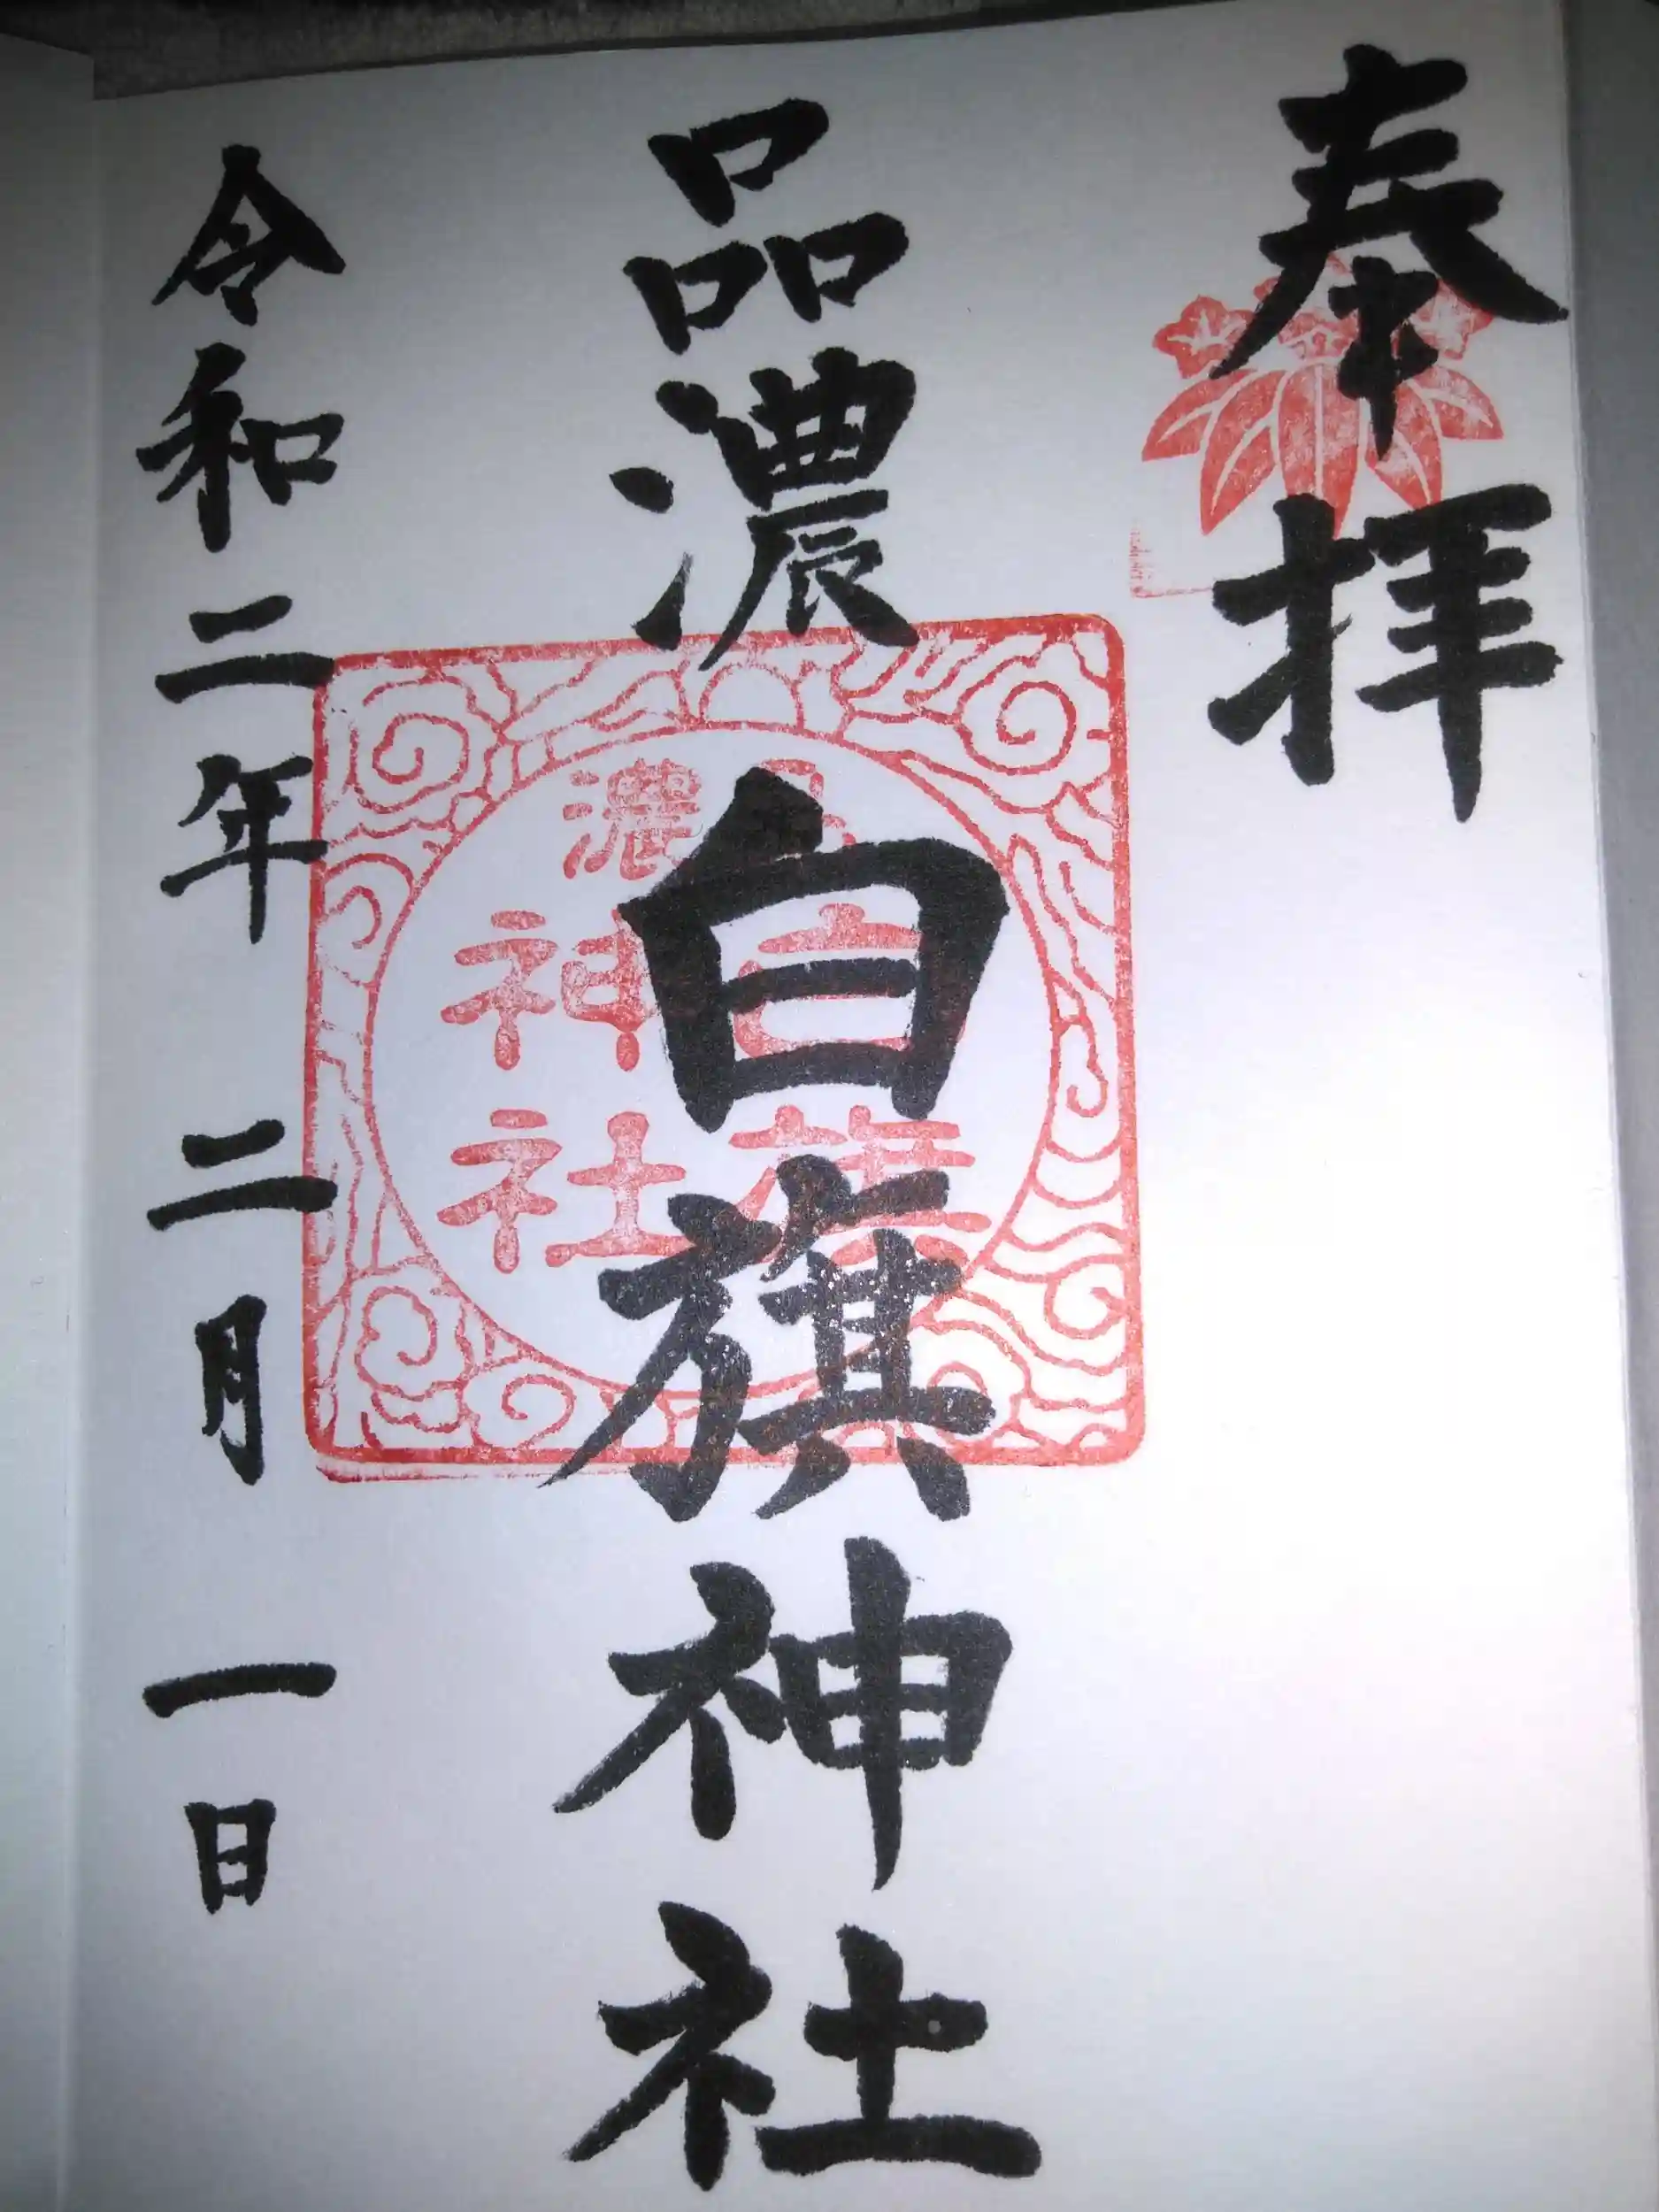 奉拝
品濃白旗神社
品濃
白旗
神社
令和二年二月一日